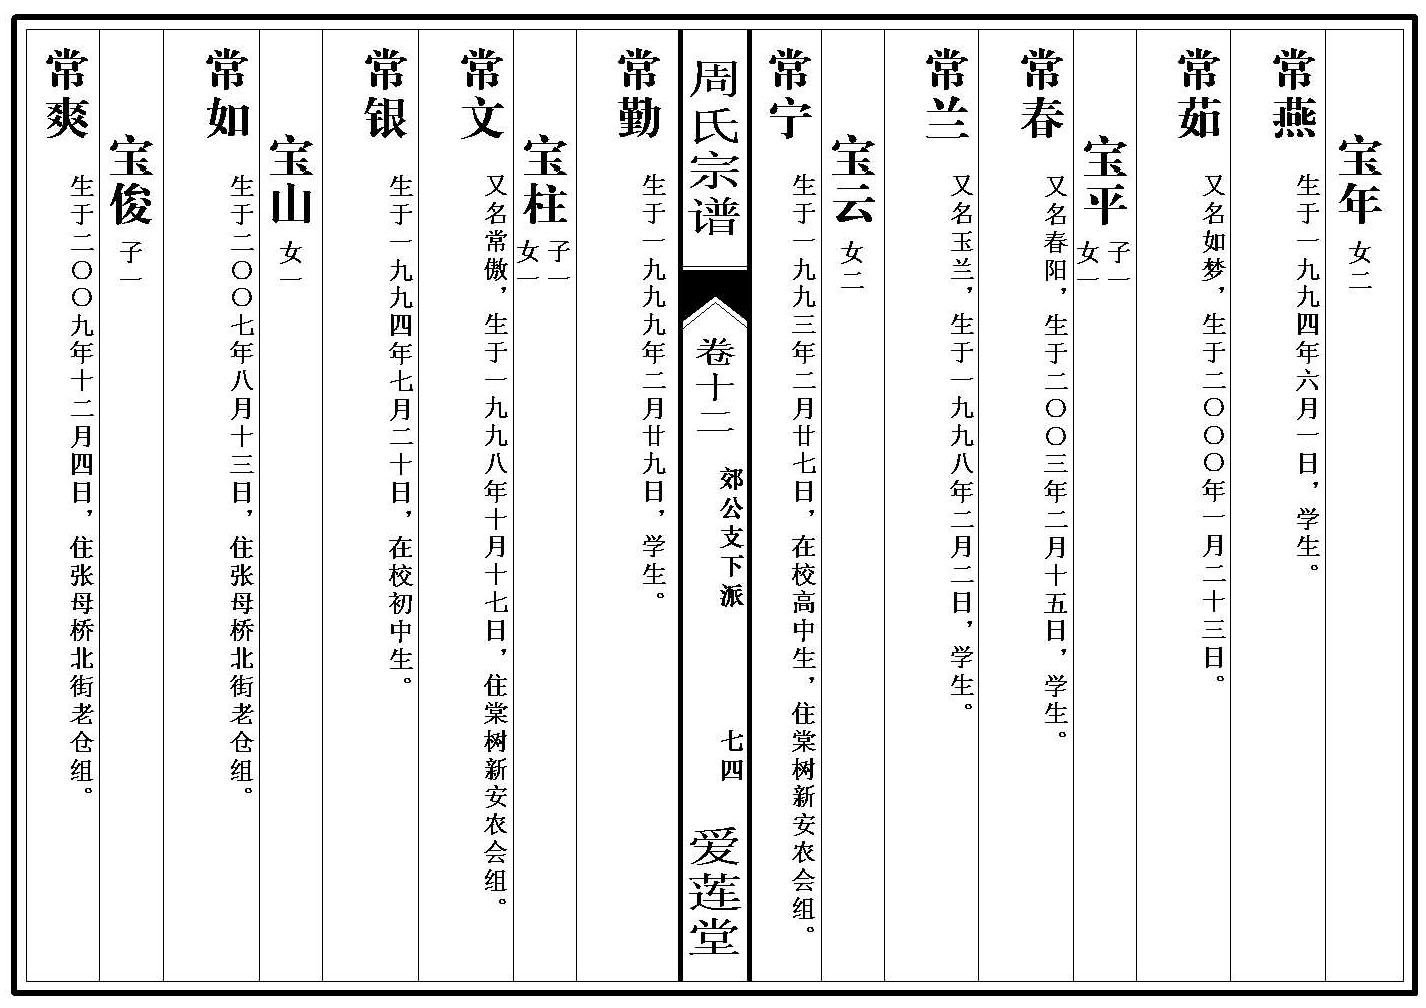 宝年 女二
常燕 生于一九九四年六月一日，学生。
常茹 又名如梦，生于二〇〇〇年一月二十三日。
宝平 子一 女一
常春 又名春阳，生于二〇〇三年二月十五日，学生。
常兰 又名玉兰，生于一九九八年二月二日，学生。
宝云 女二
常宁 生于一九九三年二月廿七日，在校高中生，住棠树新安农会组。
周氏宗谱 卷十二 郊公支下派 七四 爱莲堂
常勤 生于一九九九年二月廿九日，学生。
宝柱 子一 女一
常文 又名常傲，生于一九九八年十月十七日，住棠树新安农会组。
常银 生于一九九四年七月二十日，在校初中生。
宝山 女一
常如 生于二〇〇七年八月十三日，住张母桥北街老仓组。
宝俊 子一
常爽 生于二〇〇九年十二月四日，住张母桥北街老仓组。